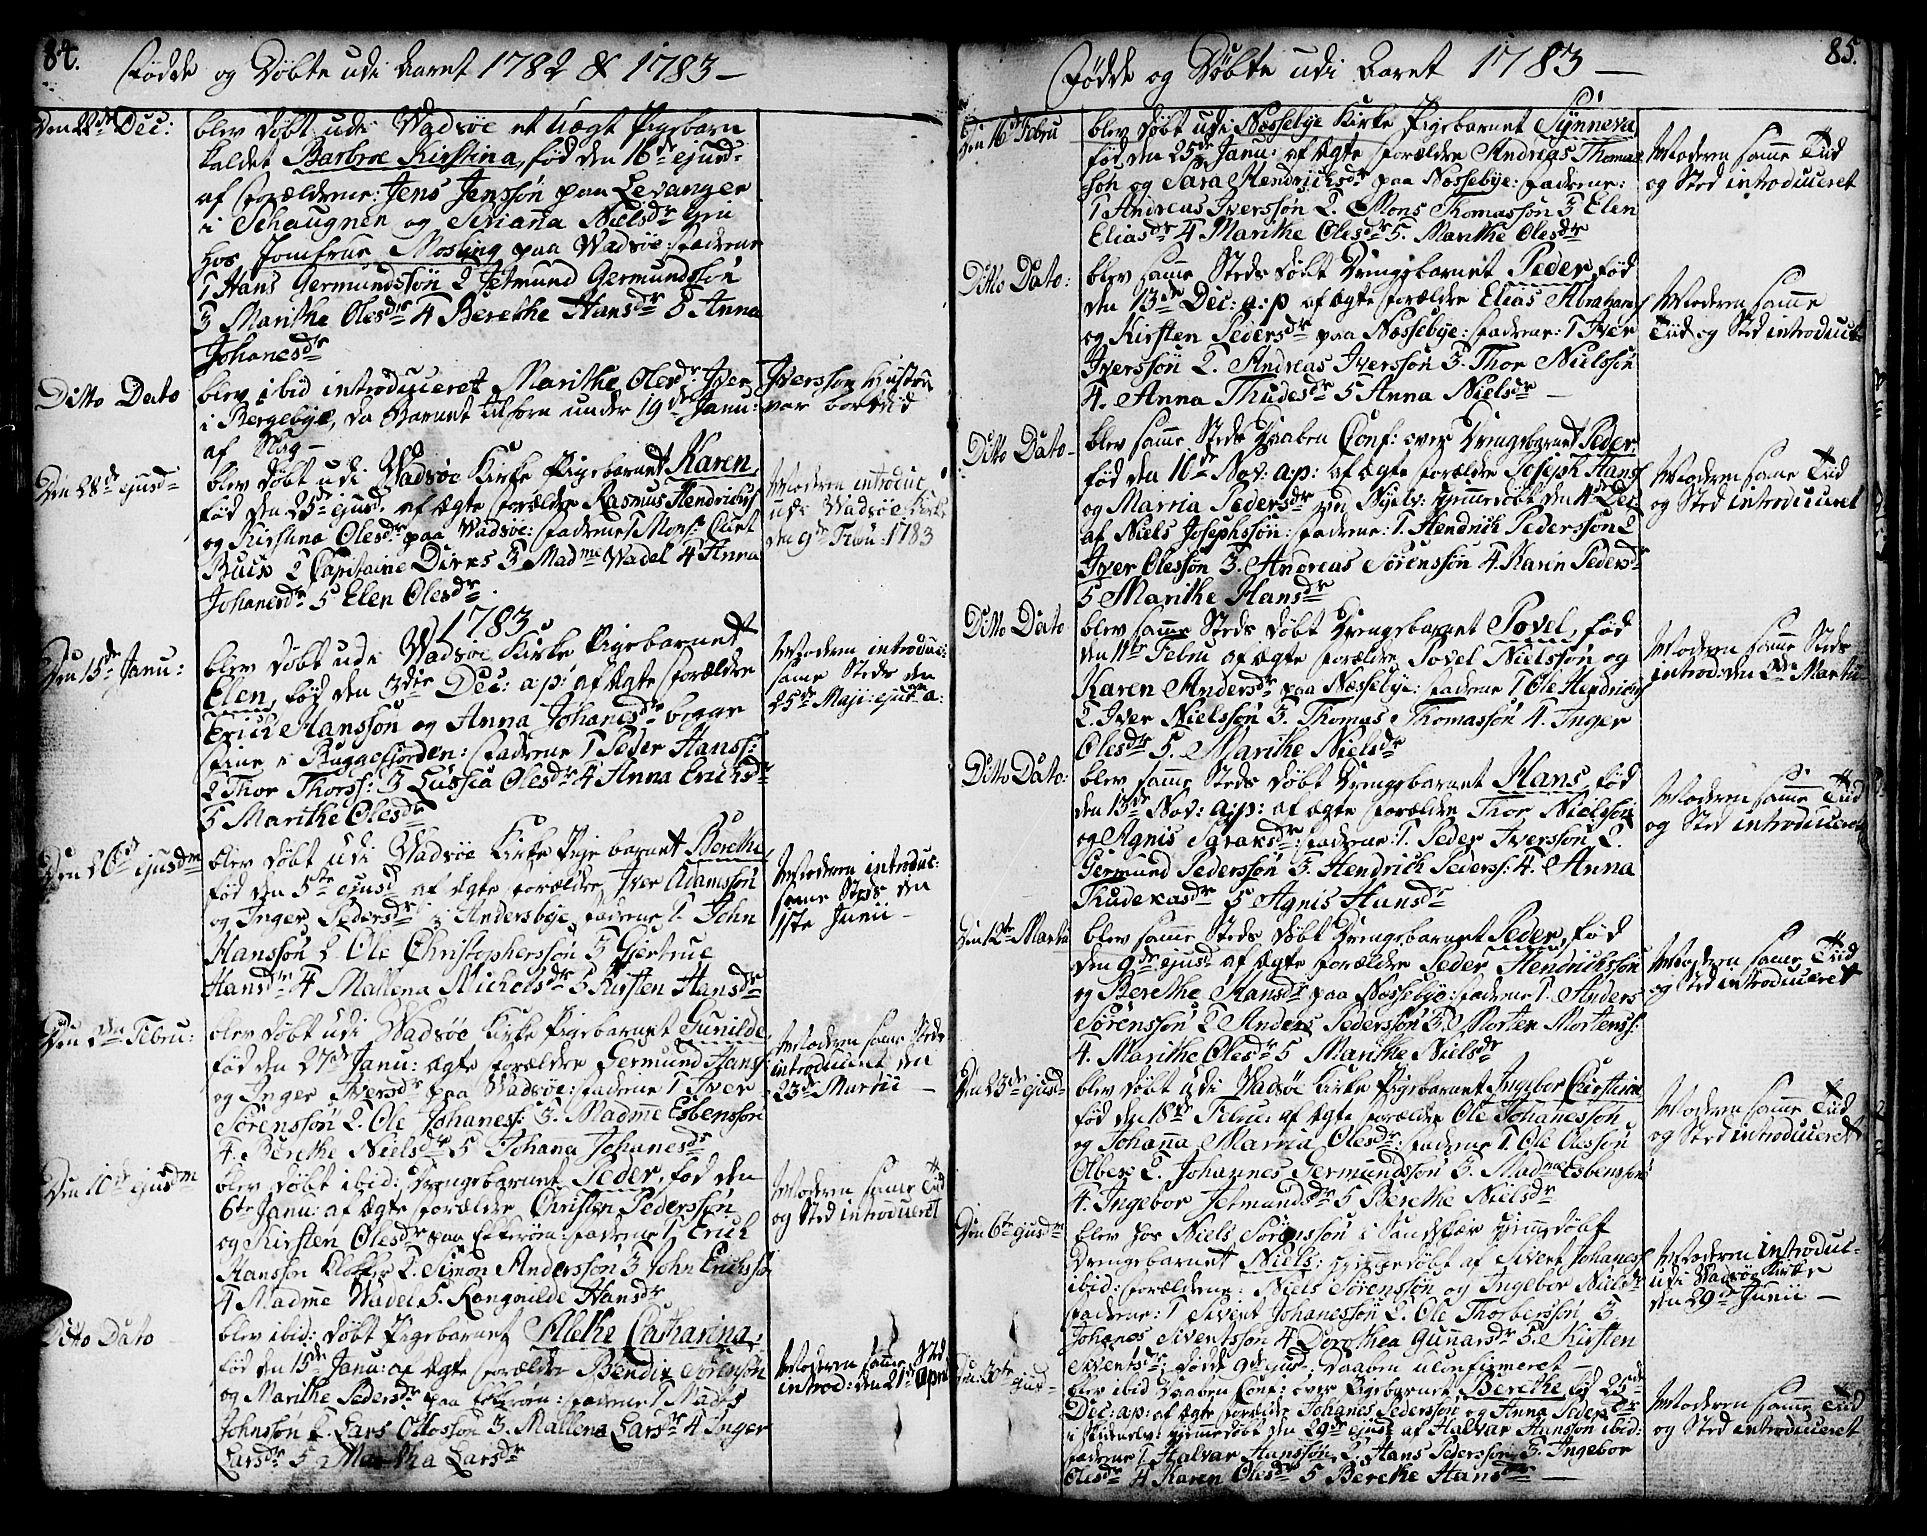 84.
Fødde og Døbte udi Aaret 1782 & 1783 —
Den 22de Dec:
blev døbt udi Wadsøe et uægt Pigebarn
kaldet Barbroe Kirstina, fød den 16de ejusd:
af Forældrene: Jens Jenssøn paa Levanger
i Schaugnen og Siviana Nielsdr
hos Jomfrue Mosling paa Wadsøe: Faderne
1 Hans Germundssøn 2 Jetmund Germundssøn
3 Marithe Olesdr 4 Berethe Hansdr 5 Anna
Johanesdr
Ditto Dato
blev ibid introduceret Marithe Olesdr Iver Iverssøn Hustru
i Bergebye, da Barnet tilforn under 19de Janu: var bortdød
af Slag —
Den 28de ejusd
blev døbt udi Wadsøe Kirke Pigebarnet Karen
fød den 25de ejusd. af ægte Forældre Rasmus Hendrichs:
og Kirstina Olesdr paa Wadsøe: Faderne 1 Mons: Curt
Buck 2 Capitaine Dirks 3 Madme Wadel 4 Anna
Johanesdr 5 Elen Olesdr.
Moderen introduc
udi Wadsøe Kirke
den 9de Febru: 1783
1783
Den 15de Janu:
blev døbt udi Wadsøe Kirke Pigebarnet
Elen, fød den 3die Dec: a:p: af ægte Forældre
Erich Hanssøn og Anna Johanesdr begge
Finne i Buggefjorden: Faderne 1 Peder Hanss:
2 Thor Thorss: 3 Lussia Olesdr 4 Anna Erichsdr
5 Marithe Olesdr
Moderen introduc:
same Steds den
25de Maji: ejusd a:
Den 26de ejusdm
blev døbt udi Wadsøe Kirke Pigebarnet Berethe
fød den 5te ejusd af ægte Forældre Iver Adamssøn
og Inger Pedersdr i Andersbye, Faderne 1. John
Hanssøn 2 Ole Christopherssøn 3 Giertrue
Hansdr 4 Mallena Michelsdr 5 Kirsten Hansdr
Moderen introduc:
same Steds den
1ste Junii —
Den 2den Febru:
blev døbt udi Wadsøe Kirke Pigebarnet Gunilde
fød den 27de Janu: ægte Forældre Germund Hans:
og Inger Iversdr paa Wadsøe: Faderne 1 Iver
Sørenssøn 2. Ole Johaness: 3. Madme Esbenssøn
4. Berethe Nielsdr 5 Johana Johanesdr
Moderen same Steds
introduceret den
23de Martii —
Den 10de ejusdm
blev døbt ibid: Drengebarnet Peder, fød den
6te Janu: af ægte Forældre Christen Pederssøn
og Kirsten Olesdr paa Ekkerøn: Faderne 1 Erich
Hanssøn Klokker 2. Simon Anderssøn 3 John Erichssøn
4 Madme Wadel 5. Rangnilde Hansdr
Moderen same Tiid
og Sted introduceret
Ditto Dato
blev ibid: døbt Pigebarnet Alethe Catharina,
fød den 15de Janu: af ægte Forældre Bendix Sørenssøn
og Marithe Pedersdr paa Ekkerøn: Faderne 1 Mads
Johnssøn 2. Lars Ottossøn 3. Mallena Larsdr 4 Inger
Larsdr 5 Martha Larsdr
Moderen same Sted
introd: den 21de April
85.
Fødde og Døbte udi Aaret 1783 —
Den 16de Febru
blev døbt udi Næssebye Kirke Pigebarnet Synneva
fød den 25de Janu: af ægte Forældre Andreas Thomas
søn og Sara Hendrichsdr paa Næssebye: Faderne:
1 Andreas Iverssøn 2. Mons Thomassøn 3 Elen
Eliasdr 4 Marithe Olesdr 5. Marithe Olesdr
Moderen same Tiid
og Sted introduceret
Ditto Dato:
blev same Steds døbt Drengebarnet Peder, fød
den 13de Dec: a:p af ægte Forældre Elias Abrahams
og Kirsten Pedersdr paa Næssebye: Faderne: 1 Iver
Iverssøn 2. Andreas Iverssøn 3. Thor Nielssøn
4. Anna Thudesdr 5 Anna Nielsdr —
Moderen same
Tiid og Sted introducet
Ditto Dato —
blev same Steds Daaben Conf: over Drengebarnet Peder
fød den 16de Nov: a:p: af ægte Forældre Joseph Hans:
og Marria Pedersdr ved Nyelv: Hjemmedøbt den 4de Dec
af Niels Josephssøn: Faderne: 1. Hendrich Pederssøn 2
Iver Olessøn 3. Andreas Sørenssøn 4. Karin Pedersdr
5 Marithe Hansdr
Moderen same Tiid
og Sted introduceret
Ditto Dato
blev same Steds døbt Drengebarnet Povel, fød
den 11te Febru af ægte Forældre Povel Nielssøn og
Karen Andersdr paa Næssebye: Faderne 1 Ole Hendrichs
2. Iver Nielssøn 3. Thomas Thomassøn 4. Inger
Olesdr 5. Marithe Nielsdr
Moderen same Steds
introd: den 2den Martii
Ditto Dato:
blev same Steds døbt Drengebarnet Hans, fød
den 13de Nov: a:p: af ægte Forældre Thor Nielssøn
og Agnis Saraksdr: Faderne: 1. Peder Iverssøn 2.
Germund Pederssøn 3. Hendrich Pederss: 4. Anna
Thudekasdr 5 Agnis Hansdr
Moderen same Tiid
og Sted introduceret
Den 12te Martii
blev same Steds døbt Drengebarnet Peder, fød
den 9de ejusd af ægte Forældre Peder Hendrichssøn
og Berethe Hansdr paa Næssebye: Faderne 1. Anders
Sørenssøn 2 Anders Pederssøn 3 Morten Mortenss:
4. Marithe Olesdr 5 Marithe Nielsdr
Moderen same Tiid
og Sted introduceret
Den 23de ejusd
blev døbt udi Wadsøe Kirke Pigebarnet Ingebor Christina
fød den 18de Febru: af ægte Forældre Ole Johanessøn
og Johana Marria Olesdr: Faderne 1 Ole Olessøn
Alber 2. Johannes Germundssøn 3. Madme Esbenssøn
4. Ingebor Jetmundsdr 5 Berethe Nielsdr
Moderen same Tiid
og Sted introduceret
Den 6te ejusdm
blev hos Niels Sørenssøn i Sandskær hjemmedøbt
Drengebarnet Niels: hjemmedøbt af Sivert Johaness
ibid: Forældrene: Niels Sørenssøn og Ingebor Nielsdr
Faderne: 1 Sivert Johanessøn 2. Ole Thorberssøn 3
Johanes Sivertssøn 4 Dorothea Gunarsdr 5. Kirsten
Sivertsdr: døde 9de ejusd: Daaben uconfirmeret —
Moderen introduc-
udi Wadsøe Kirke
den 29de Junii —
Den 30te ejusd
blev ibid Daaben Conf: over Pigebarnet Berethe, fød 25de
Dec: a:p: af ægte Forældre Johanes Pederssøn og Anna Pedersdr
hjemmedøbt den 29de ejusd af Halvar Hanssøn ibid:
Faderne 1 Halvar Hanssøn, 2 Hans Pederssøn, 3. Ingebor
Olesdr 4 Karen Olesdr 5 Berethe Hansdr —
Moderen same Tiid
og Sted introduceret